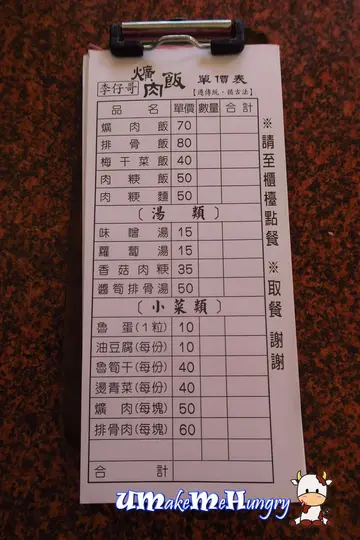 李仔哥 爌肉飯 單價表
【遵傳統‧循古法】
品名 單價 數量 合計
爌肉飯 70
排骨飯 80
梅干菜飯 40
肉粳飯 50
肉粳麵 50
〔湯類〕
味噌湯 15
蘿蔔湯 15
香菇肉粳 35
醬筍排骨湯 50
〔小菜類〕
魯蛋(1粒) 10
油豆腐(每份) 10
魯筍干(每份) 40
燙青菜(每份) 40
爌肉(每塊) 50
排骨肉(每塊) 60
合計
※請至櫃檯點餐 ※取餐 謝謝
UMakeMeHungry